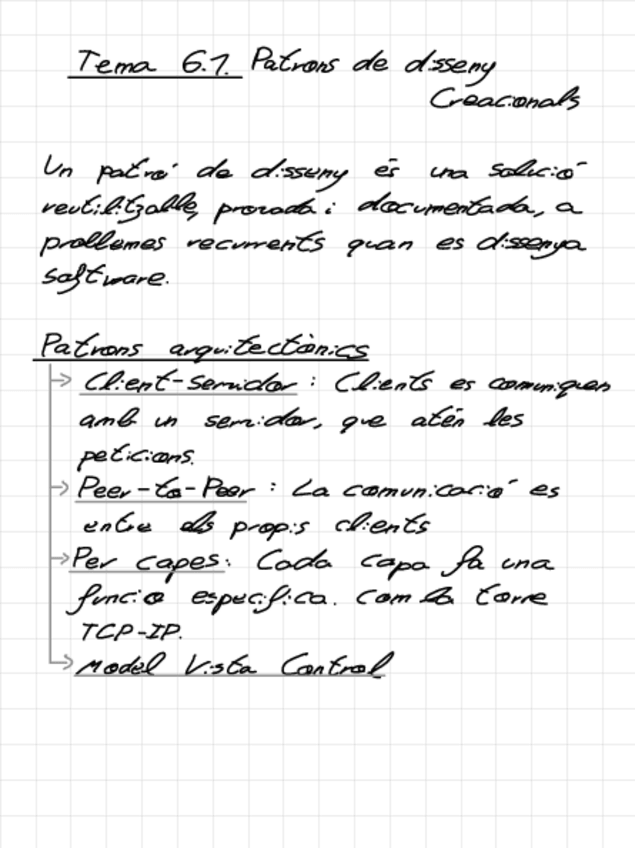 Tema 6.1. Patrons de disseny
Creacionals
Un patró de disseny és una solució
reutilitzable, provada i documentada, a
problemes recurrents quan es dissenya
software.
Patrons arquitectònics
Client-Servidor: Clients es comuniquen
amb un servidor, que atén les
peticions.
Peer-to-Peer: La comunicació es
entre els propis clients
Per capes: Cada capa fa una
funció especifica. Com la torre
TCP-IP.
Model Vista Control